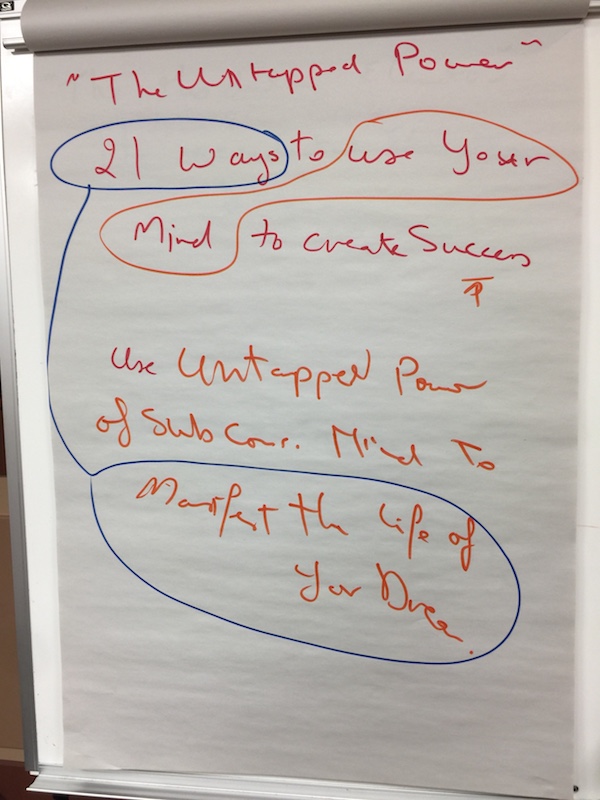 "The Untapped Power"
21 Ways to use Your
Mind to create Success
Use Untapped Power
of SubCons. Mind To
Manifest the life of
Your Dream.